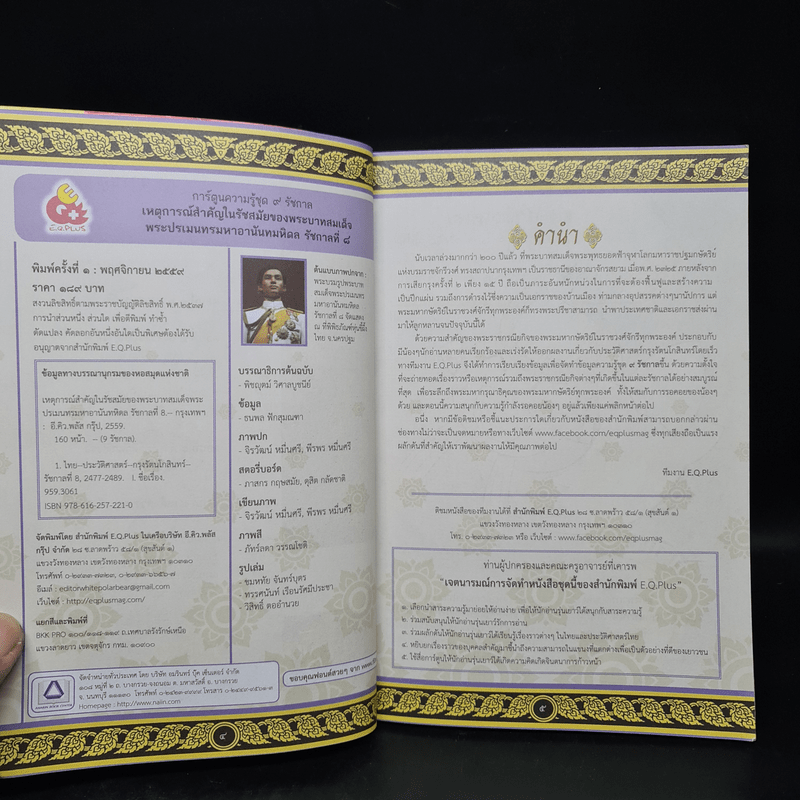 E.Q.PLUS
การ์ตูนความรู้ชุด ๙ รัชกาล
เหตุการณ์สำคัญในรัชสมัยของพระบาทสมเด็จ
พระปรเมนทรมหาอานันทมหิดล รัชกาลที่ ๘
พิมพ์ครั้งที่ ๑ : พฤศจิกายน ๒๕๕๙
ราคา ๑๘๙ บาท
สงวนลิขสิทธิ์ตามพระราชบัญญัติลิขสิทธิ์ พ.ศ.๒๕๓๗
การนำส่วนหนึ่ง ส่วนใด เพื่อตีพิมพ์ ทำซ้ำ
ดัดแปลง คัดลอกอันหนึ่งอันใดเป็นพิเศษต้องได้รับ
อนุญาตจากสำนักพิมพ์ E.Q.Plus
ข้อมูลทางบรรณานุกรมของหอสมุดแห่งชาติ
เหตุการณ์สำคัญในรัชสมัยของพระบาทสมเด็จพระ
ปรเมนทรมหาอานันทมหิดล รัชกาลที่ 8.-- กรุงเทพฯ
: อี.คิว.พลัส กรุ๊ป, 2559.
160 หน้า. -- (9 รัชกาล).
1. ไทย--ประวัติศาสตร์--กรุงรัตนโกสินทร์--
รัชกาลที่ 8, 2477-2489. I. ชื่อเรื่อง.
959.3061
ISBN 978-616-257-221-0
จัดพิมพ์โดย สำนักพิมพ์ E.Q.Plus ในเครือบริษัท อี.คิว.พลัส
กรุ๊ป จำกัด ๒๘ ซ.ลาดพร้าว ๕๘/๑ (สุขสันต์ ๑)
แขวงวังทองหลาง เขตวังทองหลาง กรุงเทพฯ ๑๐๓๑๐
อีเมล : editorwhitepolarbear@gmail.com
เว็บไซต์ : http://eqplusmag.com/
แยกสีและพิมพ์ที่
BKK PRO ๑๐๐/๑๑๘-๑๑๙ ถ.เทศบาลรังรักษ์เหนือ
แขวงลาดยาว เขตจตุจักร กทม. ๑๐๙๐๐
ต้นแบบภาพปกจาก :
พระบรมรูปพระบาท
สมเด็จพระปรเมนทร
มหาอานันทมหิดล
รัชกาลที่ ๘ จัดแสดง
ณ พิพิธภัณฑ์หุ่นขี้ผึ้ง
ไทย จ.นครปฐม
บรรณาธิการต้นฉบับ
- พิชญดม วิศาลบูชนีย์
ข้อมูล
- ธนพล ฟักสุมณฑา
ภาพปก
- จิรวัฒน์ หมื่นศรี, พีรพร หมื่นศรี
สตอรี่บอร์ด
- ภาสกร กฤษสมัย, ดุสิต กลัดชาติ
เขียนภาพ
- จิรวัฒน์ หมื่นศรี, พีรพร หมื่นศรี
ภาพสี
- ภัทร์ลดา วรรณโชติ
รูปเล่ม
- ชมหทัย จันทร์บุตร
- ทรรศนันท์ เรือนรัศมีประชา
- วิสิทธิ์ ดออำนวย
จัดจำหน่ายทั่วประเทศ โดย บริษัท อมรินทร์ บุ๊ค เซ็นเตอร์ จำกัด
๑๐๘ หมู่ที่ ๒ ถ. บางกรวย-จงถนอม ต. มหาสวัสดิ์ อ. บางกรวย
Homepage : http://www.naiin.com
ขอบคุณฟอนต์สวยๆ จาก www.
๔
คำนำ
นับเวลาล่วงมากกว่า ๒๐๐ ปีแล้ว ที่พระบาทสมเด็จพระพุทธยอดฟ้าจุฬาโลกมหาราชปฐมกษัตริย์
แห่งบรมราชจักรีวงศ์ ทรงสถาปนากรุงเทพฯ เป็นราชธานีของอาณาจักรสยาม เมื่อพ.ศ. ๒๓๒๕ ภายหลังจาก
การเสียกรุงครั้งที่ ๒ เพียง ๑๕ ปี ถือเป็นภาระอันหนักหน่วงในการที่จะต้องฟื้นฟูและสร้างความ
เป็นปึกแผ่น รวมถึงการดำรงไว้ซึ่งความเป็นเอกราชของบ้านเมือง ท่ามกลางอุปสรรคต่างๆนานัปการ แต่
พระมหากษัตริย์ในราชวงศ์จักรีทุกพระองค์ก็ทรงพระปรีชาสามารถ นำพาประเทศชาติและเอกราชส่งผ่าน
มาให้ลูกหลานจนปัจจุบันนี้ได้
ด้วยความสำคัญของพระราชกรณียกิจของพระมหากษัตริย์ในราชวงศ์จักรีทุกพระองค์ ประกอบกับ
มีน้องๆนักอ่านหลายคนเรียกร้องและเร่งรัดให้ออกผลงานเกี่ยวกับประวัติศาสตร์กรุงรัตนโกสินทร์โดยเร็ว
ทางทีมงาน E.Q.Plus จึงได้ทำการเรียบเรียงข้อมูลเพื่อจัดทำการ์ตูนความรู้ชุด ๙ รัชกาลขึ้น ด้วยความตั้งใจ
ที่จะถ่ายทอดเรื่องราวเหตุการณ์รวมถึงพระราชกรณียกิจต่างๆที่เกิดขึ้นในแต่ละรัชกาลได้อย่างสมบูรณ์
ที่สุด เพื่อระลึกถึงพระมหากรุณาธิคุณของพระมหากษัตริย์ทุกพระองค์ ทั้งให้สมกับการรอคอยของน้องๆ
ด้วย และตอนนี้ความสนุกกับความรู้กำลังรอคอยน้องๆ อยู่แล้วเพียงแค่พลิกหน้าต่อไป
อนึ่ง หากมีข้อติชมหรือชี้แนะประการใดเกี่ยวกับหนังสือของสำนักพิมพ์สามารถบอกกล่าวผ่าน
ช่องทางไม่ว่าจะเป็นจดหมายหรือทางเว็บไซต์ www.facebook.com/eqplusmag ซึ่งทุกเสียงถือเป็นแรง
ผลักดันที่สำคัญให้เราพัฒนาผลงานให้มีคุณภาพต่อไป
ทีมงาน E.Q.Plus
ติชมหนังสือของทีมงานได้ที่ สำนักพิมพ์ E.Q.Plus ๒๘ ซ.ลาดพร้าว ๕๘/๑ (สุขสันต์ ๑)
แขวงวังทองหลาง เขตวังทองหลาง กรุงเทพฯ ๑๐๓๑๐
หรือ เว็บไซต์ : www.facebook.com/eqplusmag
ท่านผู้ปกครองและคณะครูอาจารย์ที่เคารพ
"เจตนารมณ์การจัดทำหนังสือชุดนี้ของสำนักพิมพ์ E.Q.Plus"
๑. เลือกนำสาระความรู้มาย่อยให้อ่านง่าย เพื่อให้นักอ่านรุ่นเยาว์ได้สนุกกับสาระความรู้
๒. ร่วมสนับสนุนให้นักอ่านรุ่นเยาว์รักการอ่าน
๓. ร่วมผลักดันให้นักอ่านรุ่นเยาว์ได้เรียนรู้เรื่องราวต่างๆ ในไทยและประวัติศาสตร์ไทย
๔. หยิบยกเรื่องราวของบุคคลสำคัญมาชี้นำถึงความสามารถในแขนงที่แตกต่างเพื่อเป็นตัวอย่างที่ดีของเยาวชน
๕. ใช้สื่อการ์ตูนให้นักอ่านรุ่นเยาว์ได้เกิดความคิดเกิดจินตนาการก้าวหน้า
๕